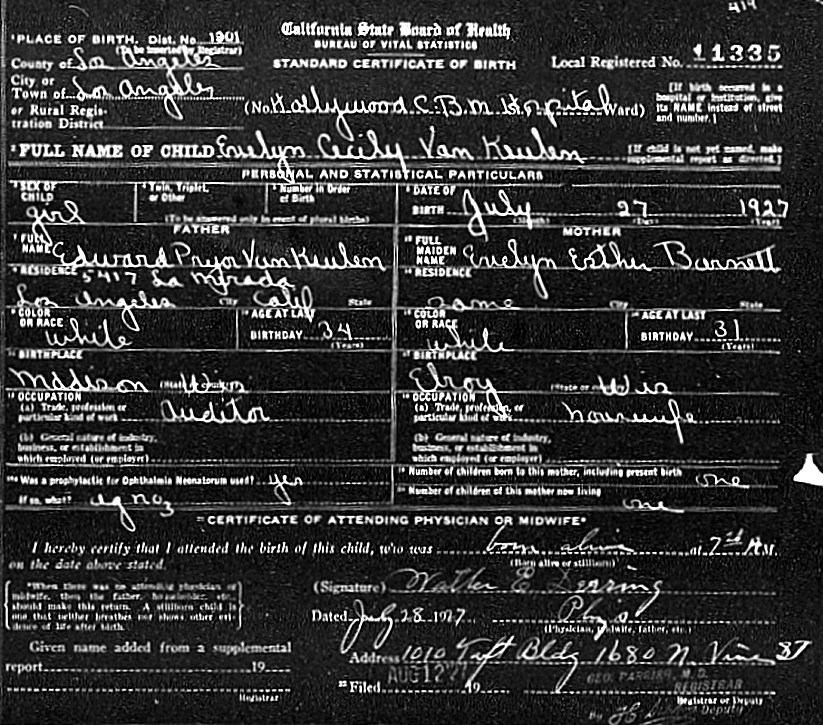 419
California State Board of Health
BUREAU OF VITAL STATISTICS
STANDARD CERTIFICATE OF BIRTH
Local Registered No. 11335
¹PLACE OF BIRTH. Dist. No. 1901
(To be inserted by Registrar)
County of Los Angeles
City or
Town of Los Angeles
or Rural Regis-
tration District
(No. Hollywood C.B.M. Hospital Ward)
[If birth occurred in a
hospital or institution, give
its NAME instead of street
and number.]
²FULL NAME OF CHILD Evelyn Cecily Van Keulen
[If child is not yet named, make
supplemental report as directed.]
PERSONAL AND STATISTICAL PARTICULARS
SEX OF CHILD girl
Twin, Triplet, or Other
Number in Order of Birth
(To be answered only in event of plural births)
DATE OF BIRTH July 27 1927
(Month) (Day) (Year)
FATHER
FULL NAME Edward Pryor Van Keulen
RESIDENCE 5417 La Mirada
Los Angeles City Calif State
COLOR OR RACE white
AGE AT LAST BIRTHDAY 34 (Years)
BIRTHPLACE
Madison (State or country) Wis
OCCUPATION
(a) Trade, profession or
particular kind of work Auditor
(b) General nature of industry,
business, or establishment in
which employed (or employer)
MOTHER
FULL MAIDEN NAME Evelyn Esther Barnett
RESIDENCE
same City State
COLOR OR RACE white
AGE AT LAST BIRTHDAY 31 (Years)
BIRTHPLACE
Elroy (State or country) Wis
OCCUPATION
(a) Trade, profession, or
particular kind of work housewife
(b) General nature of industry,
business, or establishment in
which employed (or employer)
Was a prophylactic for Ophthalmia Neonatorum used? yes
If so, what? ag no3
Number of children born to this mother, including present birth one
Number of children of this mother now living one
CERTIFICATE OF ATTENDING PHYSICIAN OR MIDWIFE*
I hereby certify that I attended the birth of this child, who was born alive at M.
(Born alive or stillborn)
on the date above stated.
*When there was no attending physician or
midwife, then the father, householder, etc.,
should make this return. A stillborn child is
one that neither breathes nor shows other evi-
dence of life after birth.
(Signature) Walter E
Dated July 28 1927 Phys
(Physician, midwife, father, etc.)
Given name added from a supplemental
report 19
Registrar
Address 1010 Taft Bldg 1680 N. Vine ST
Filed AUG 12 27 19
GEO. PARRISH, M.D.
REGISTRAR
Registrar or Deputy
By Deputy